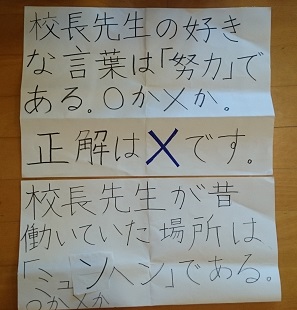 校長先生の好き
な言葉は「努力」で
ある。○か×か。
正解は×です。
校長先生が昔
働いていた場所は
「ミュンヘン」である。
○か×か